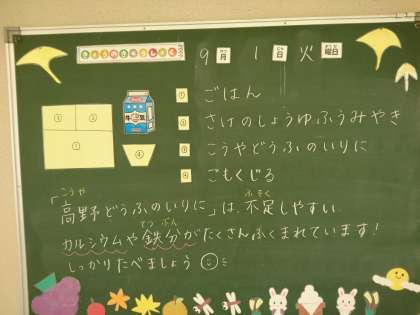 きょうのきゅうしょく
9月1日火曜日
① ごはん
② さけのしょうゆふうみやき
③ こうやどうふのいりに
④ ごもくじる
① ② ③ ④
牛乳
「高野どうふのいりに」は、不足しやすい
こうや ふそく
カルシウムや鉄分がたくさんふくまれています!
てつ ぶん
しっかりたべましょう